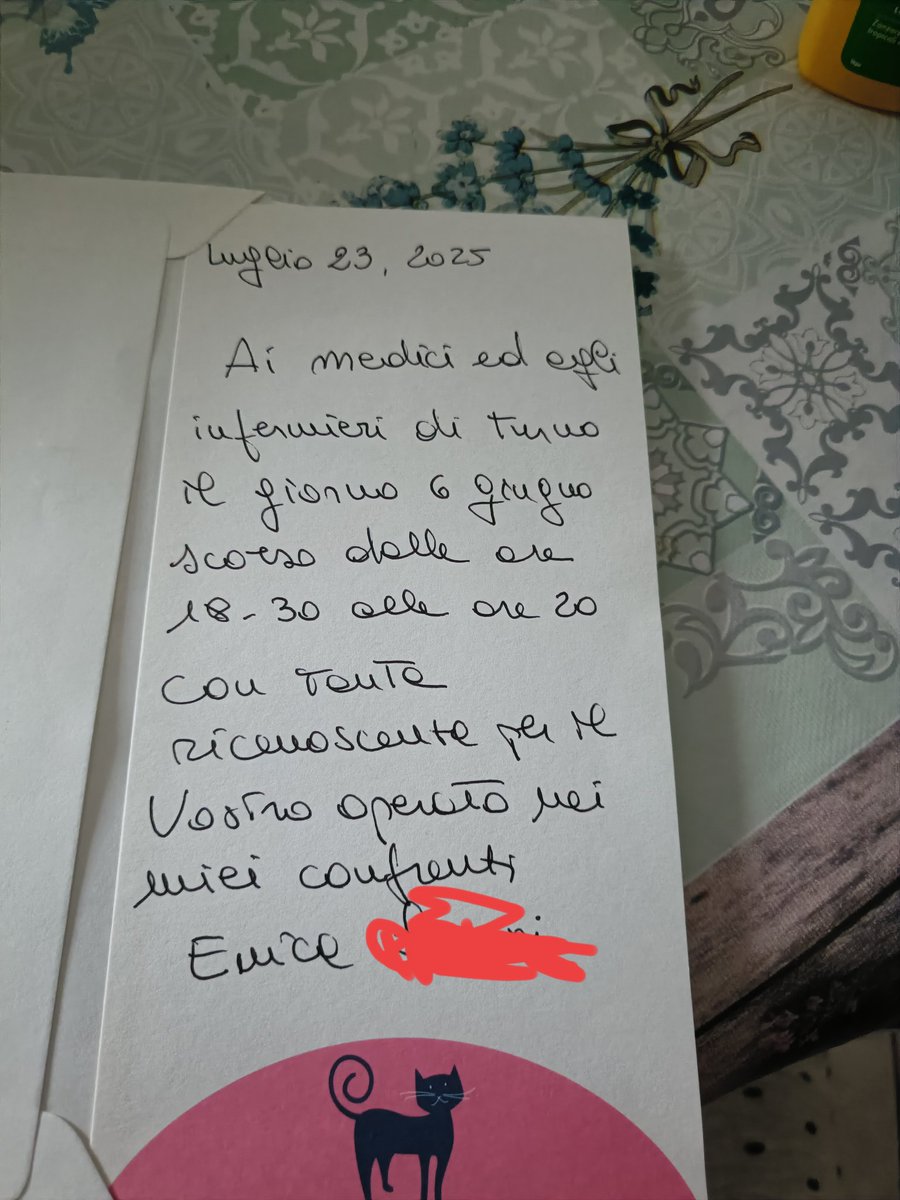 Luglio 23, 2025
Ai medici ed agli
infermieri di turno
il giorno 6 giugno
scorso dalle ore
18-30 alle ore 20
Con tanta
riconoscente per il
Vostro operato nei
miei confronti
Enrica